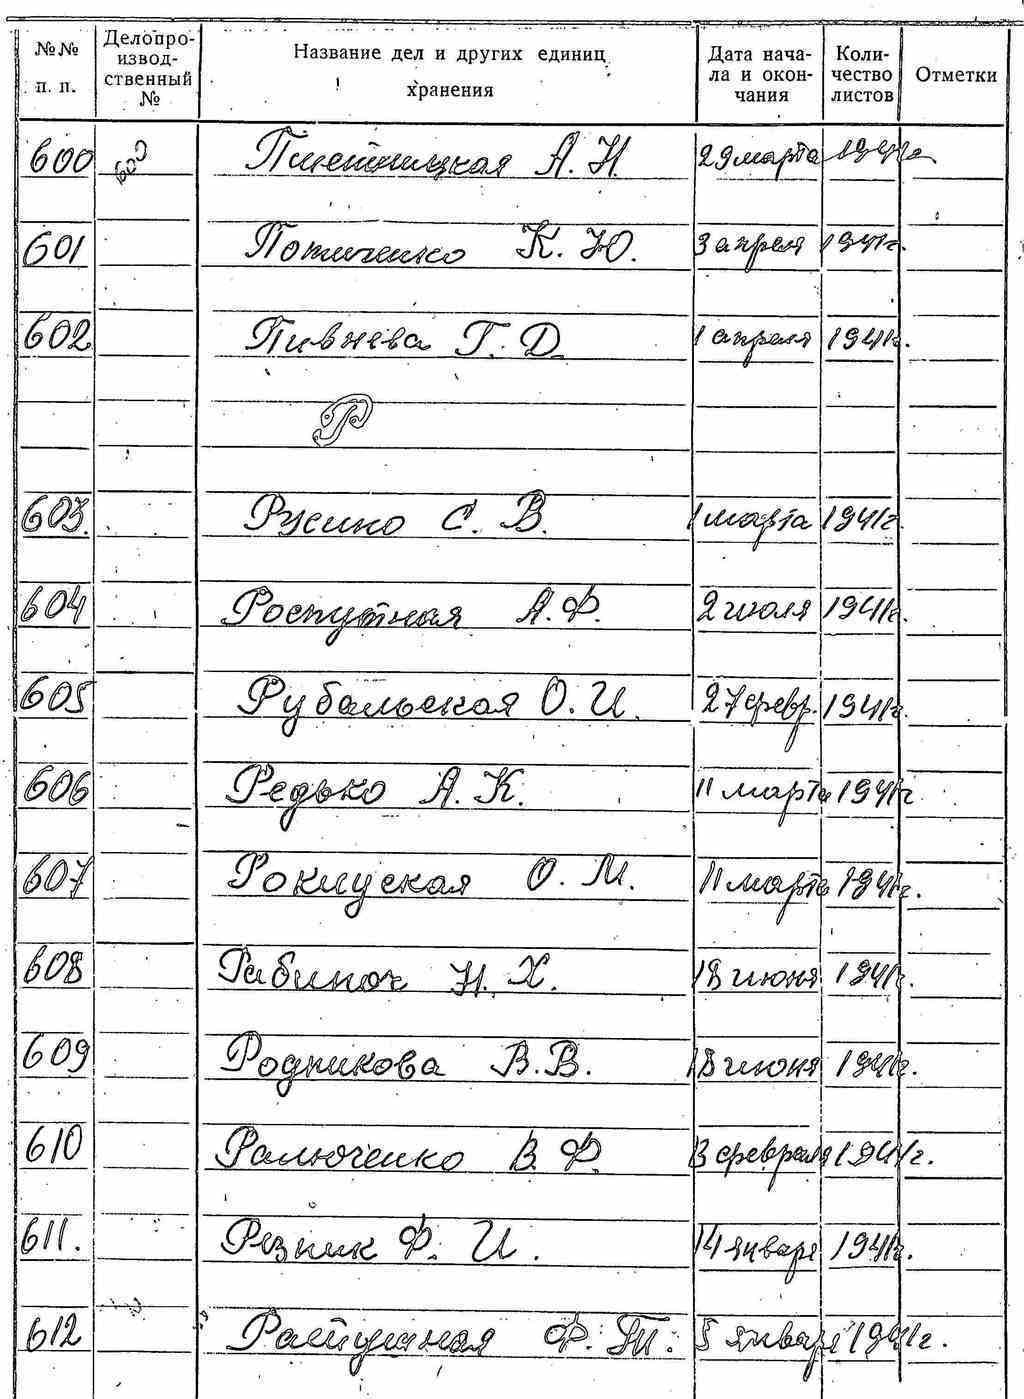 №№ п. п. Делопроизвод- ственный № Название дел и других единиц хранения Дата нача- ла и окон- чания Коли- чество листов Отметки
600 600 А. Н. 29 марта 1941г
601 К. Ю. 3 апреля 1941г.
602 Пивнева Г. Д. 1 апреля 1941г.
Р
603. Русино С. В. 1 марта 1941г.
604 Роспутная А. Ф. 2 июля 1941г.
605 Рубальская О. И. 27 февр. 1941г.
606 Редько А. К. 11 марта 1941г
607 О. М. 11 марта 1941г.
608 Н. Х. 18 июня 1941г.
609 Родникова В. В. 18 июня 1941г.
610 В. Ф. 3 февраля 1941г.
611. Резник Ф. И. 14 января 1941г.
612 Ф. Т. 5 января 1941г.